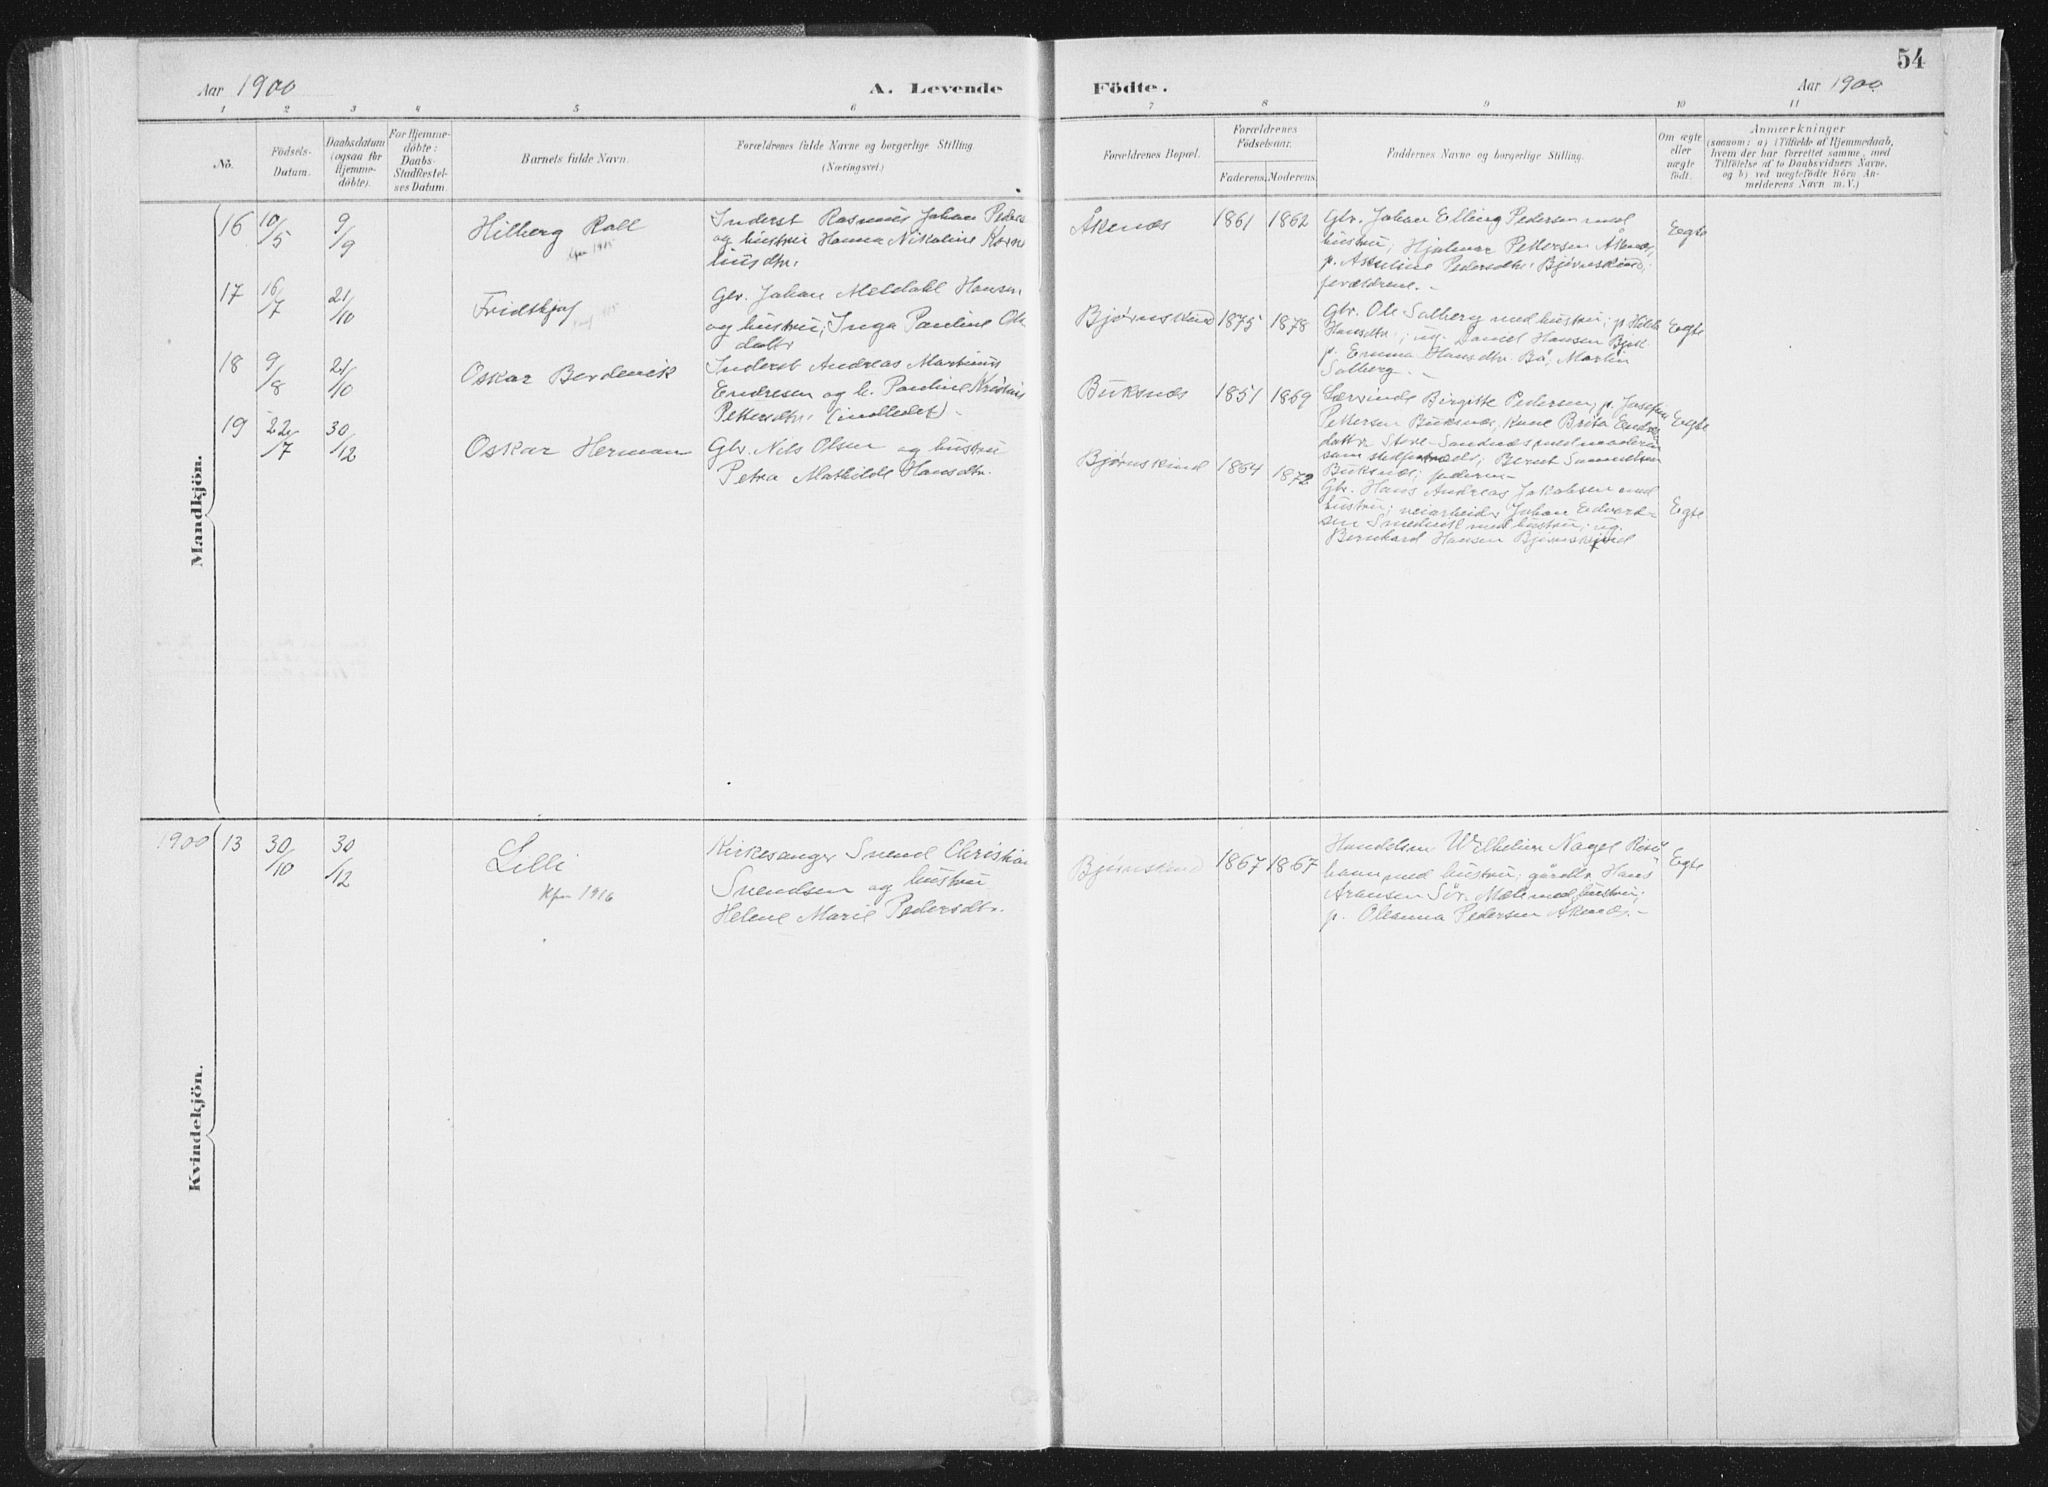 54
Aar 1900
A. Levende Födte.
Aar 1900
1 2 3 4 5 6 7 8 9 10 11
Nö.
Födsels-
Datum.
Daabsdatum
(ogsaa for
Hjemme-
döbte).
For Hjemme-
döbte:
Daabs-
Stadfæstel-
ses Datum.
Barnets fulde Navn.
Forældrenes fulde Navne og borgerlige Stilling
(Næringsvei.)
Forældrenes Bopæl.
Forældrenes
Födselsaar.
Faderens. Moderens.
Faddernes Navne og borgerlige Stilling.
Om ægte
eller
uægte
födt.
Anmærkninger
(saasom: a) i Tilfælde af Hjemmedaab,
hvem der har forrettet samme, med
Tilföielse af to Daabsvidners Navne,
og b) ved uægtefödte Börn An-
melderens Navn m. V.)
Mandkjön.
16 10/5 9/9 Hilberg Roll
1915
Inderst Rasmus Johan
og hustru Hanna Nikoline
Åkenæs 1861 1862
Gbr. Johan Elling Pedersen med
hustru; Hjalmar Pettersen Åkenæs;
p. Pedersdtr. Bjørnskind;
forældrene. -
Egte
17 16/7 21/10 Fridthjof
Gbr. Johan Meldahl Hansen
og hustru; Inga Pauline Ols
dattr
Bjørnskind 1875 1878
Gbr. Ole Solberg med hustru; p.
Hansdtr.; ug. Daniel Hansen
p. Emma Hansdtr. Bø; Martin
Solberg. -
Egte
18 9/8 21/10 Oskar Berderik
Inderst Andreas Martinus
Endresen og h. Pauline Kristine
Pettersdtr. -
Buksnæs 1851 1869
Birgitte Pedersen, p. Josefine
Pettersen Buksnæs, Kone Brita
dattr. Store-Sandnæs med moderen
som; Bernt Samuelsen
Buksnæs; faderen -
Egte
19 22/7 30/12 Oskar Herman
Gbr. Nils Olsen og hustru
Petra Mathilde Hansdtr.
Bjørnskind 1864 1872
Gbr. Hans Andreas Jakobsen med
hustru; veiarbeider Johan Edvard-
sen Smedvik med hustru; ug.
Bernhard Hansen Bjørnskind
Egte
Kvindekjön.
1900 13 30/10 30/12 Lilli
Kfm 1916
Kirkesanger Svend Christian
Svendsen og hustru
Helene Marie Pedersdtr.
Bjørnskind 1867 1867
Handelsm Wilhelm Nagel
havn med hustru; gårdbr Hans
Aronsen Sør. med hustru;
p. Oleanna Pedersen Åkenæs. -
Egte